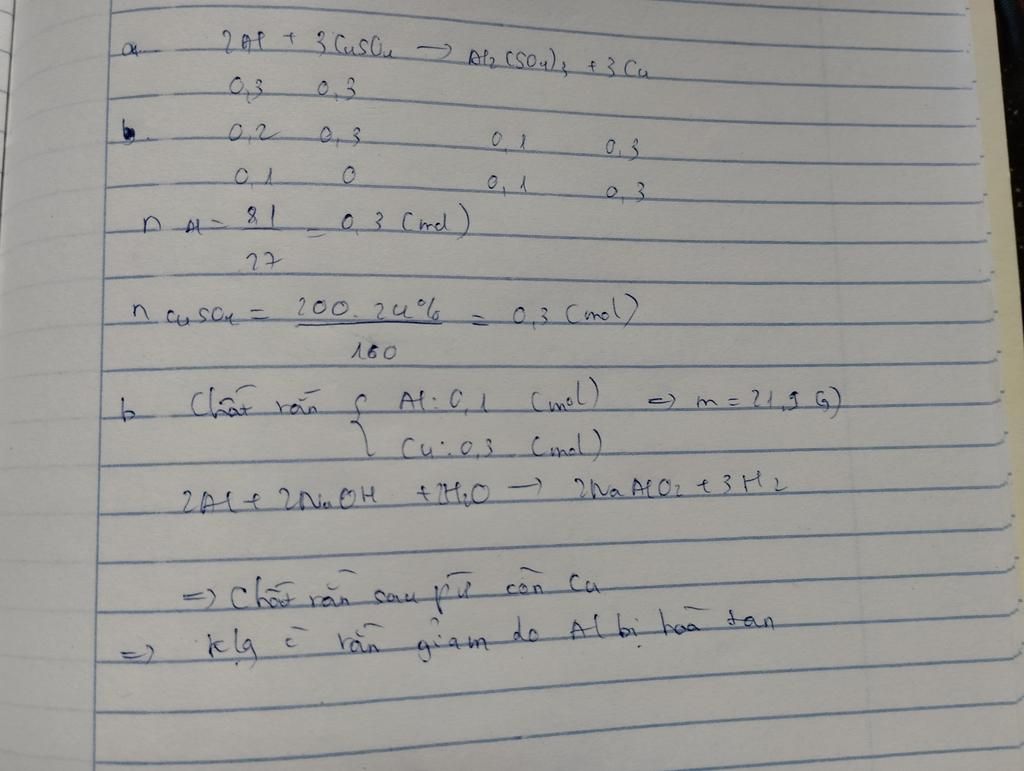 a. 2Al + 3CuSO4 → Al2(SO4)3 + 3Cu
0,3 0,3
b. 0,2 0,3 0,1 0,3
0,1 0 0,1 0,3
n Al = 81/27 = 0,3 (mol)
n CuSO4 = 200.24%/160 = 0,3 (mol)
b Chất rắn { Al: 0,1 (mol) => m = 21,9 G)
Cu: 0,3 (mol)
2Al + 2NaOH + 2H2O → 2NaAlO2 + 3H2
=> Chất rắn sau pứ còn Cu
=> klg c rắn giảm do Al bị hoà tan